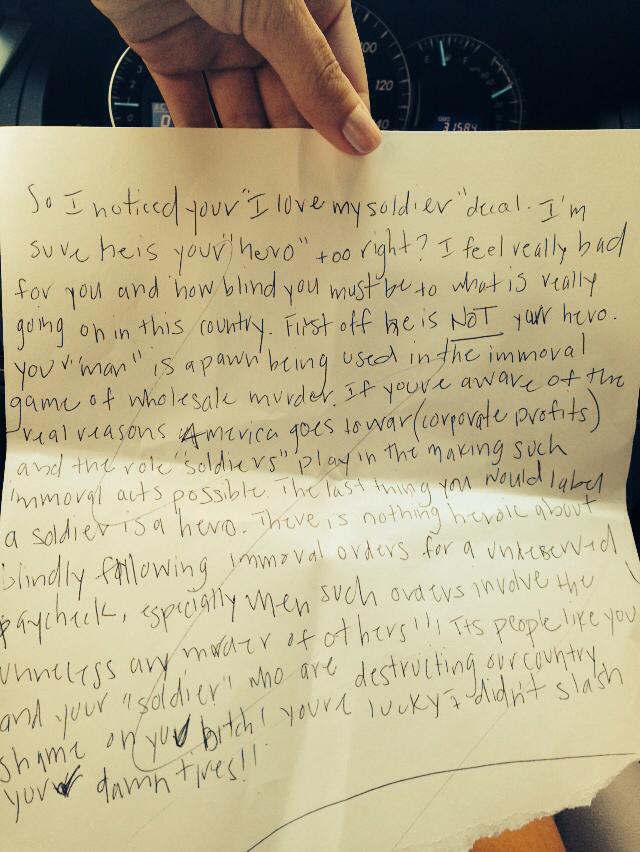 100
120
140
31584
So I noticed your "I love my soldier" decal. I'm
sure he is your "hero" too right? I feel really bad
for you and how blind you must be to what is really
going on in this country. First off he is NOT your hero.
your "man" is a pawn being used in the immoral
game of wholesale murder. If you're aware of the
real reasons America goes to war (corporate profits)
and the role "soldiers" play in the making such
immoral acts possible. The last thing you would label
a soldier is a hero. There is nothing heroic about
blindly following immoral orders for a undeserved
paycheck, especially when such orders involve the
unnecessary murder of others!!! Its people like you
and your "soldier" who are destructing our country
shame on you bitch! you're lucky I didn't slash
your damn tires!!